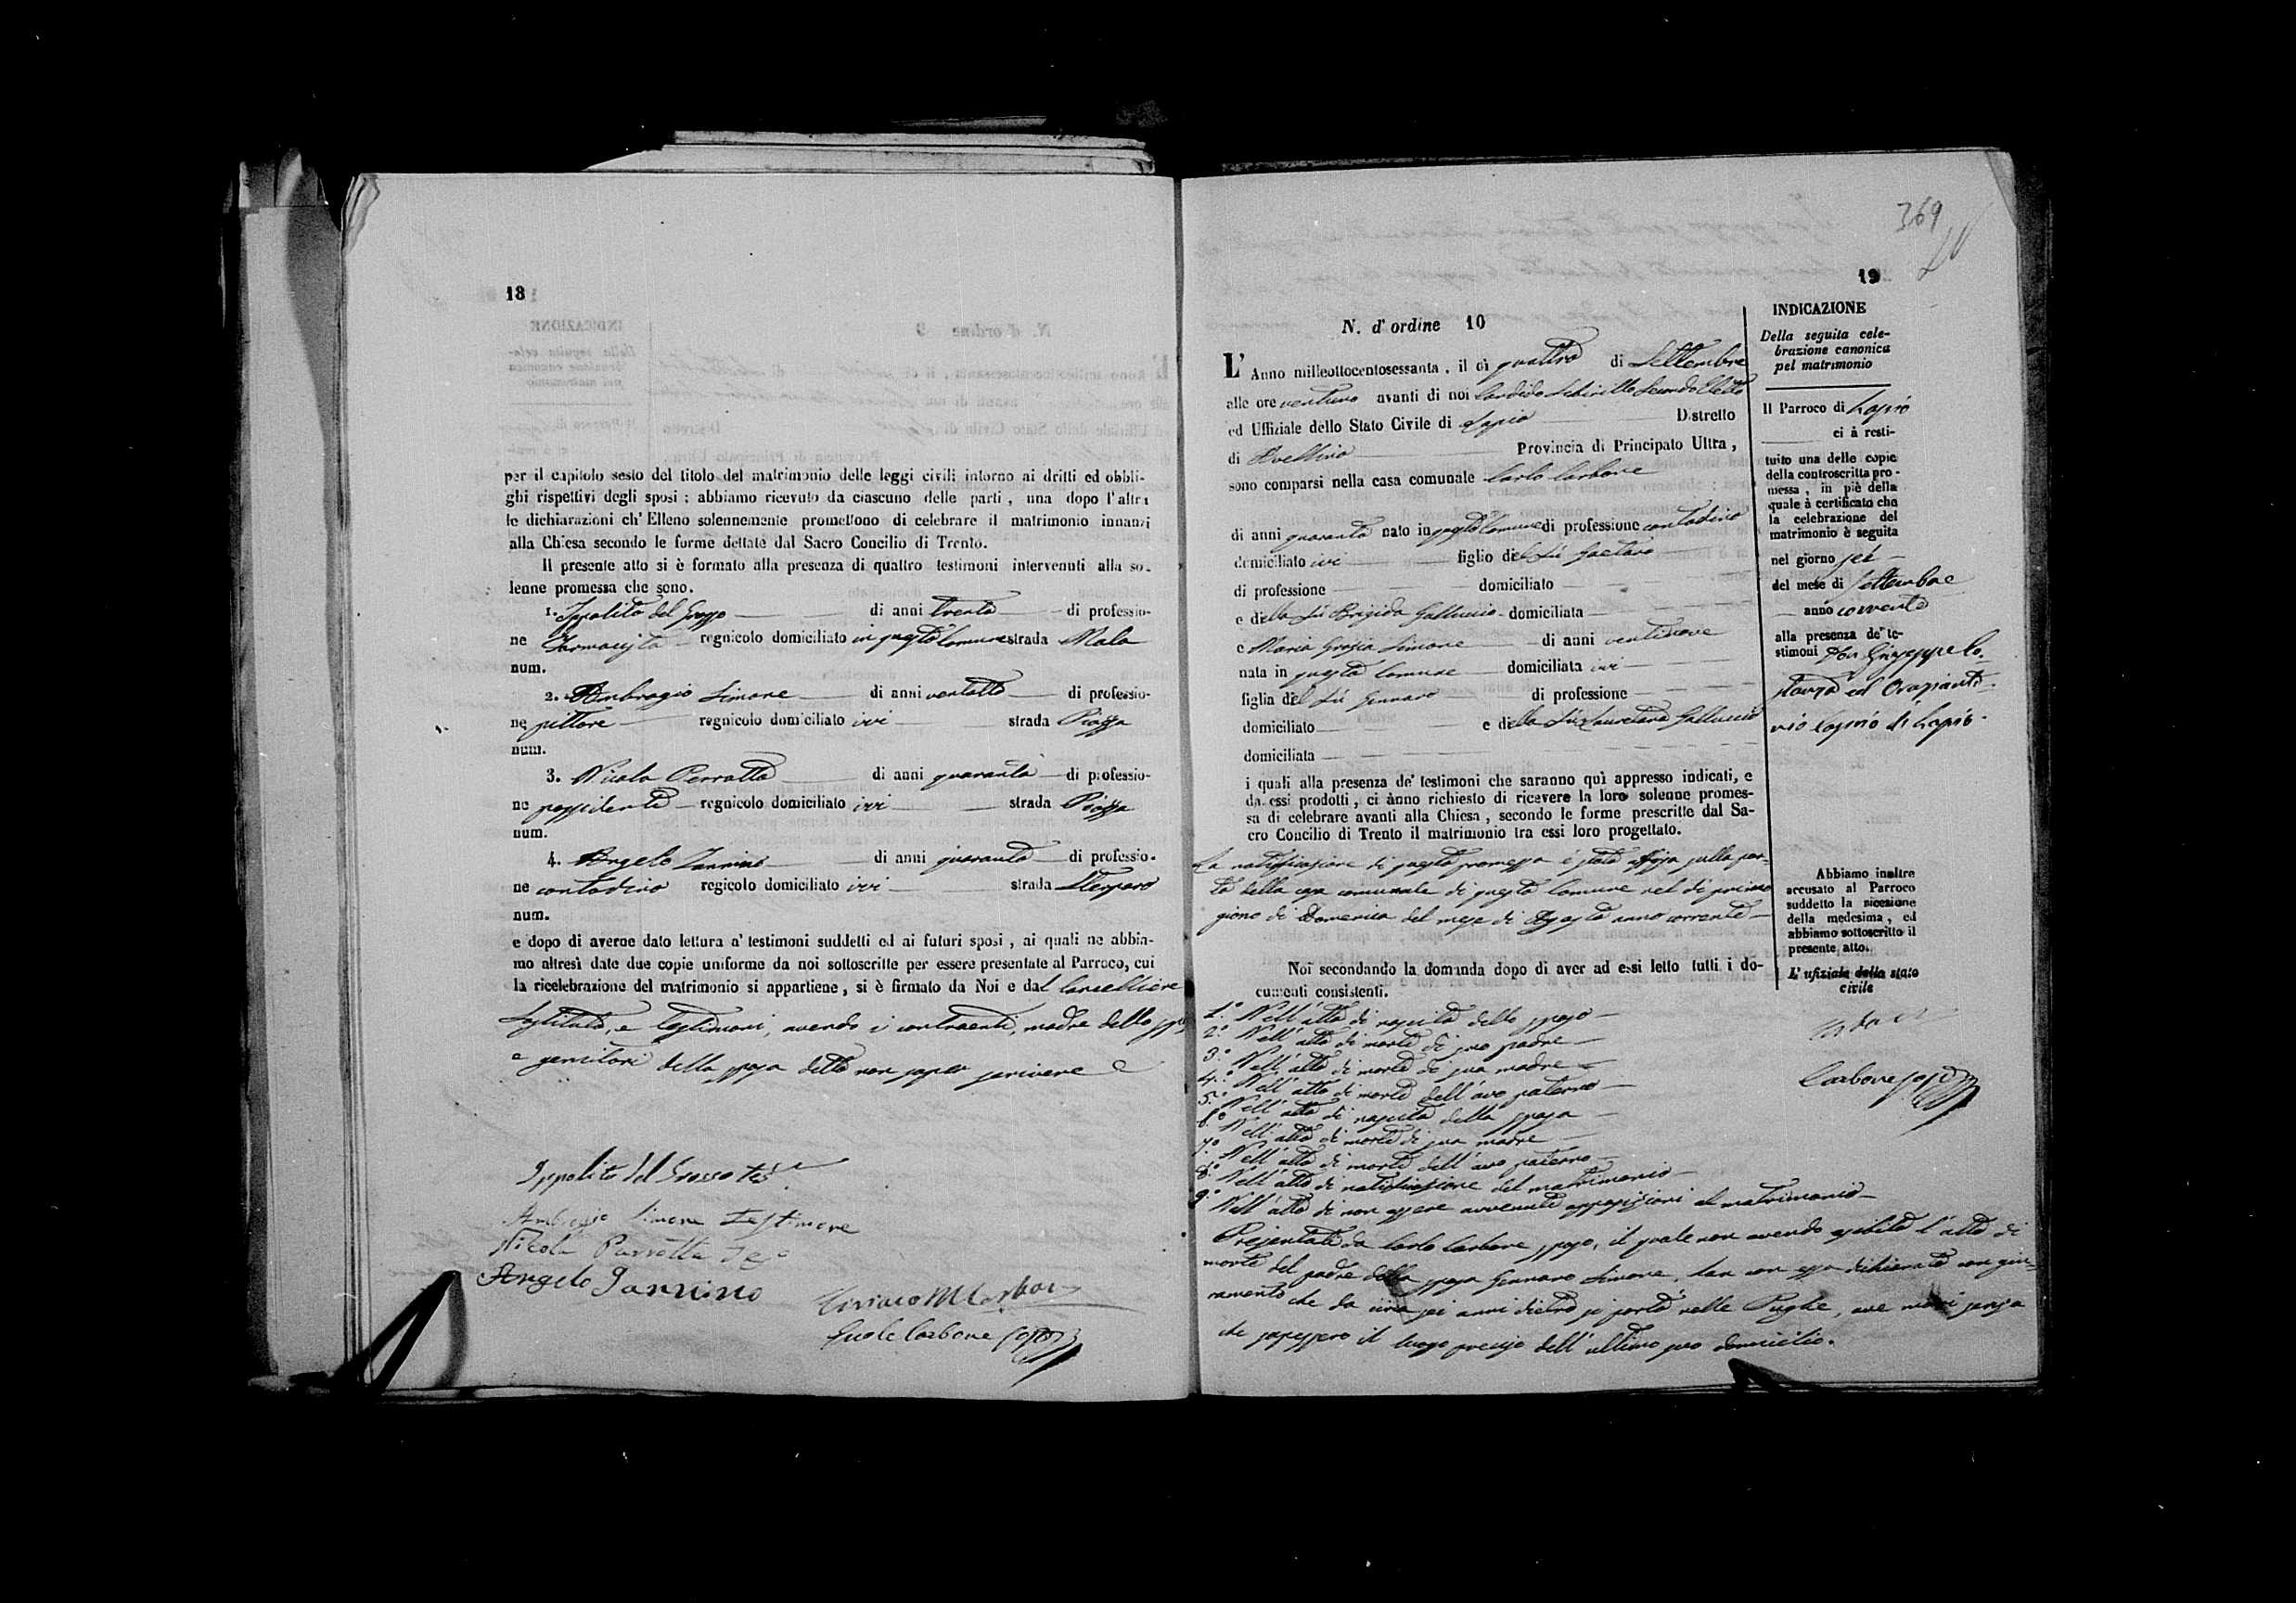 18
per il capitolo sesto del titolo del matrimonio delle leggi civili intorno ai dritti ed obbli-
ghi rispettivi degli sposi : abbiamo ricevuto da ciascuno delle parti , una dopo l'altra
le dichiarazioni ch'Elleno solennemente promettono di celebrare il matrimonio innanzi
alla Chiesa secondo le forme dettate dal Sacro Concilio di Trento.
Il presente atto si è formato alla presenza di quattro testimoni intervenuti alla so-
lenne promessa che sono.
1. Ippolito del Grosso di anni trenta di professio-
ne Farmacista regnicolo domiciliato in questo Comune strada Mala
num.
2. Ambrogio Simone di anni ventotto di professio-
ne pittore regnicolo domiciliato ivi strada Piazza
num.
3. Nicola Perrotta di anni quaranta di professio-
ne possidente regnicolo domiciliato ivi strada Piazza
num.
4. Angelo Iannino di anni quaranta di professio-
ne contadino regicolo domiciliato ivi strada
num.
e dopo di averne dato lettura a' testimoni suddetti ed ai futuri sposi , ai quali ne abbia-
mo altresì date due copie uniforme da noi sottoscritte per essere presentate al Parroco, cui
la ricelebrazione del matrimonio si appartiene , si è firmato da Noi e dal Cancelliere
Sostituto, e testimoni, avendo i contraenti, madre dello sposo
e genitori della sposa detto non saper scrivere
Ippolito del Grosso
Ambrogio Simone testimone
Nicola Parrotta
Angelo Iannino
Carbone
369
19
N. d'ordine 10
L'Anno milleottocentosessanta , il dì quattro di Settembre
alle ore ventuno avanti di noi Candido Schirillo Secondo Eletto
ed Uffiziale dello Stato Civile di Lapio Distretto
di Avellino Provincia di Principato Ultra ,
sono comparsi nella casa comunale Carlo Carbone
di anni quaranta nato in questo Comune di professione contadino
domiciliato ivi figlio del fù Gaetano
di professione domiciliato
e della fù Brigida Galluccio domiciliata
e Maria Grazia Simone di anni ventinove
nata in questo Comune domiciliata ivi
figlia del fù Gennaro di professione
domiciliato e della fù Lauretana Galluccio
domiciliata
i quali alla presenza de' testimoni che saranno quì appresso indicati, e
da essi prodotti , ci ànno richiesto di ricevere la loro solenne promes-
sa di celebrare avanti alla Chiesa , secondo le forme prescritte dal Sa-
cro Concilio di Trento il matrimonio tra essi loro progettato.
La notificazione di questa promessa è stata affissa sulla por-
ta della casa comunale di questo Comune nel dì primo
giono di Domenica del mese di Agosto anno corrente
Noi secondando la domanda dopo di aver ad essi letto tutti i do-
cumenti consistenti.
1.° Nell'atto di nascita dello sposo
2.° Nell'atto di morte di suo padre
3.° Nell'atto di morte di sua madre
4.° Nell'atto di morte dell'avo paterno
5.° Nell'atto di nascita della sposa
6.° Nell'atto di morte di sua madre
7.° Nell'atto di morte dell'avo paterno
8.° Nell'atto di notificazione del matrimonio
9.° Nell'atto di non essere avvenute opposizioni al matrimonio
Presentati da Carlo Carbone sposo, il quale non avendo esibito l'atto di
morte del padre della sposa Gennaro Simone, han con essa dichiarato con giu-
ramento che da circa sei anni dietro si portò nelle Puglie, ove morì senza
che sapessero il luogo preciso dell'ultimo suo domicilio.
INDICAZIONE
Della seguita cele-
brazione canonica
pel matrimonio
Il Parroco di Lapio
ci à resti-
tuito una delle copie
della controscritta pro-
messa , in piè della
quale à certificato che
la celebrazione del
matrimonio è seguita
nel giorno sei
del mese di Settembre
anno corrente
alla presenza de' te-
stimoni Don Giuseppe Co-
stanza ed Orazianto-
nio di Lapio
Abbiamo inoltre
accusato al Parroco
suddetto la ricezione
della medesima , ed
abbiamo sottoscritto il
presente atto.
L'ufiziale dello stato
civile
Carbone